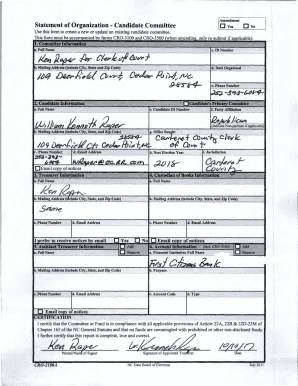 Statement of Organization - Candidate Committee
Amendment
Yes No
Use this form to create a new or update an existing candidate committee.
This form must be accompanied by forms CRO-3100 and CRO-3500 (when amending, only re-submit if applicable).
1. Committee Information
a. Full Name
c. ID Number
Ken Raper for Clerk of Court
b. Mailing Address (include City, State, and Zip Code)
d. Date Organized
109 Deerfield Court, Cedar Point, NC
28584
e. Phone Number
2. Candidate Information
Candidate's Primary Committee
a. Full Name
e. Candidate ID Number
f. Party Affiliation
William Kenneth Raper
Republican
b. Mailing Address (include City, State, and Zip Code)
g. Office Sought
28584
Carteret County Clerk
109 Deerfield Ct. Cedar Point, NC
of Court
c. Phone Number
d. Email Address
h. Next Election Year
i. Jurisdiction
2018
Carteret
County
Email copy of notices
3. Treasurer Information
4. Custodian of Books Information
a. Full Name
a. Full Name
Ken Raper
b. Mailing Address (include City, State, and Zip Code)
b. Mailing Address (include City, State, and Zip Code)
Same
c. Phone Number
d. Email Address
c. Phone Number
d. Email Address
I prefer to receive notices by email
Yes No
Email copy of notices
5. Assistant Treasurer Information
Add
6. Account Information
(incl. CRO-3500)
Add
a. Full Name
Remove
a. Financial Institution Full Name
Remove
First Citizens Bank
b. Mailing Address (include City, State, and Zip Code)
b. Purpose
c. Phone Number
d. Email Address
c. Account Code
d. Type
Email copy of notices
CERTIFICATION
I certify that the Committee or Fund is in compliance with all applicable provisions of Article 22A, 22B & 22D-22M of
Chapter 163 of the NC General Statutes and that no funds are commingled with prohibited or other non-disclosed funds.
I further certify that this report is complete, true and correct.
Ken Raper
Printed Name of Signer
Signature of Appointed Treasurer
Date
CRO-2100A
NC State Board of Elections